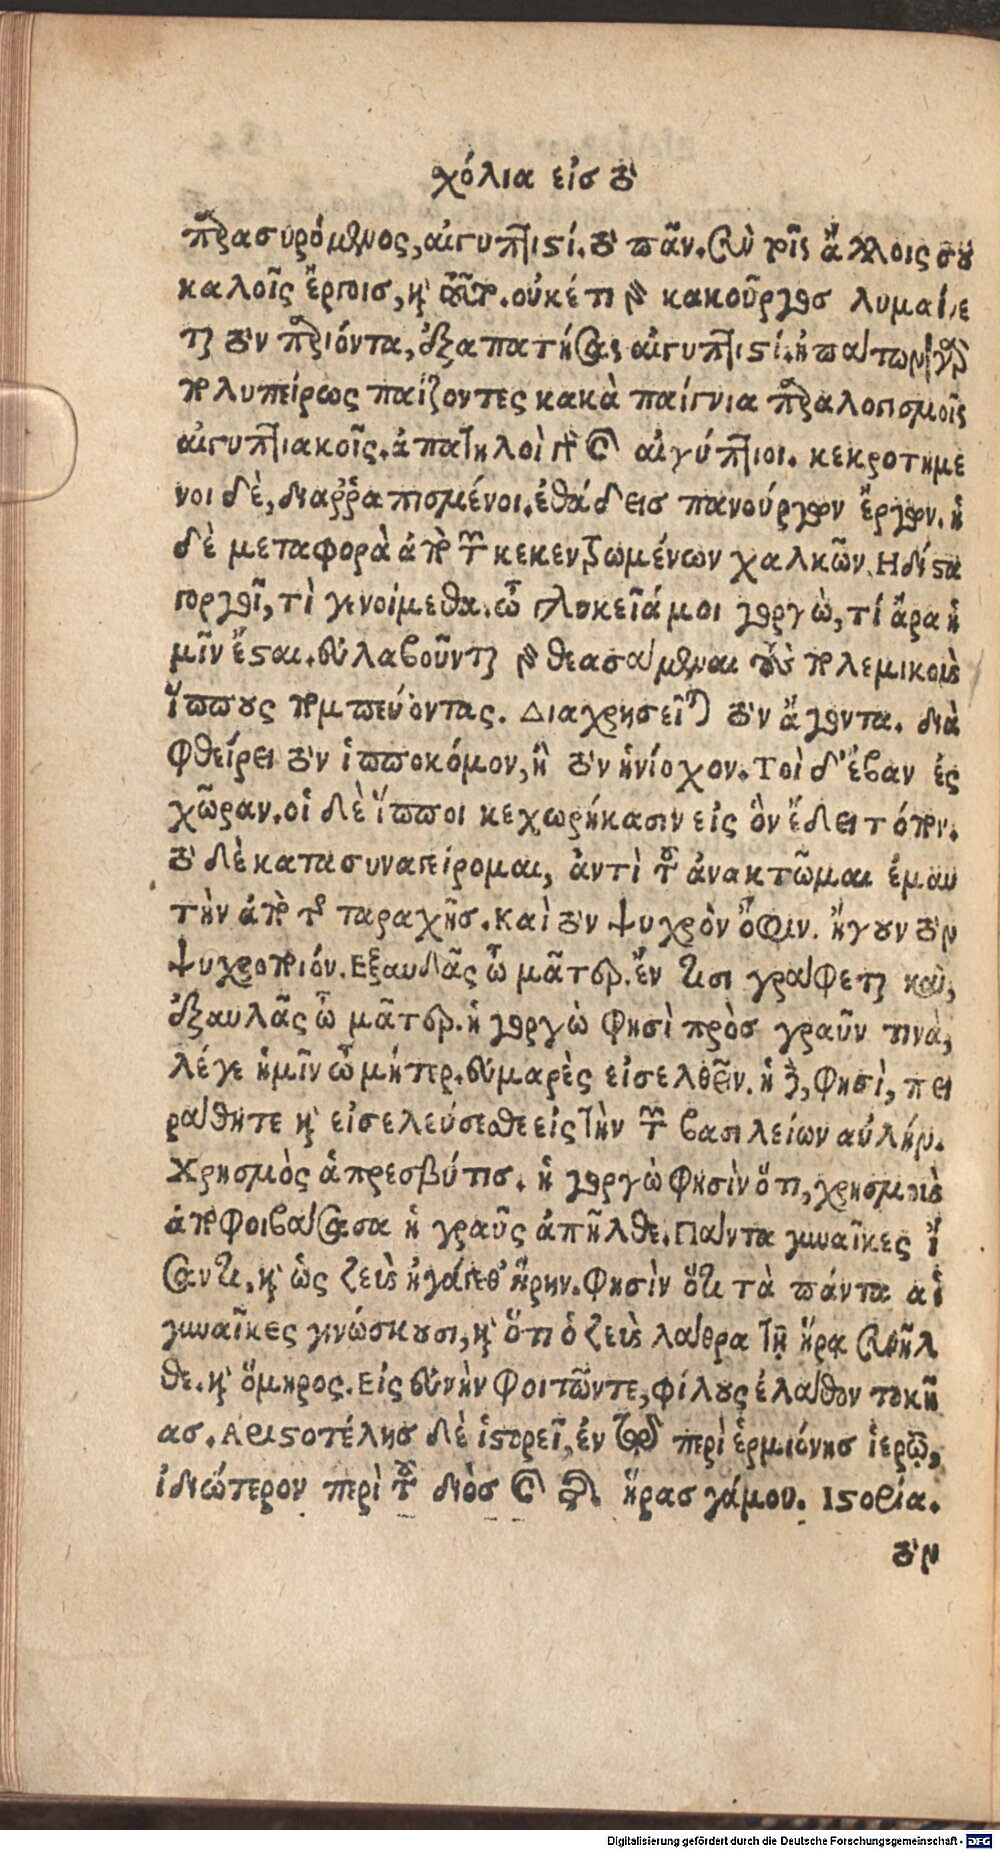 χόλια εἰσ τὸ
παρασυρόμενος, αἰγυπτιστί. τὸ πᾶν. σὺν τοῖς ἄλλοις σου
καλοῖς ἔργοισ, καὶ τοῦτο. οὐκέτι γὰρ κακοῦργοσ λυμαίνε
ται τὸν παριόντα, ἐξαπατήσας αἰγυπτιστί. ἠπάτων γὰρ
πολυπείρως παίζοντες κακὰ παίγνια παραλογισμοῖς
αἰγυπτιακοῖς. ἀπατηλοὶ γὰρ οἱ αἰγύπτιοι. κεκροτημέ
νοι δὲ, διαῤῥαπισμένοι. ἐθάδεισ πανούργων ἔργων. ἡ
δὲ μεταφορὰ ἀπὸ τῶν κεκεντρωμένων χαλκῶν. Ηδίστα
γοργοῖ, τί γενοίμεθα. ὦ γλυκεῖά μοι γοργὼ, τί ἄρα ἡ
μῖν ἔσται. εὐλαβοῦνται γὰρ θεασάμεναι τοὺς πολεμικοὺς
ἵππους πομπεύοντας. Διαχρησεῖται τὸν ἄγοντα. δια
φθείρει τὸν ἱπποκόμον, ἢ τὸν ἡνίοχον. Τοὶ δ' ἔβαν ἐς
χῶραν. οἱ δὲ ἵπποι κεχωρήκασιν εἰς ὃν ἔδει τόπον.
τὸ δὲ κατασυναγείρομαι, ἀντὶ τοῦ ἀνακτῶμαι ἐμαυ
τὴν ἀπὸ τῆς ταραχῆσ. Καὶ τὸν ψυχρὸν ὄφιν. ἤγουν τὸν
ψυχροποιόν. Εξαυδᾶς ὦ μᾶτερ. ἔν τισι γράφεται καὶ,
ἐξαυλᾶς ὦ μᾶτερ. ἡ γοργὼ φησὶ πρὸσ γραῦν τινὰ,
λέγε ἡμῖν ὦ μήτερ. εὐμαρὲς εἰσελθεῖν. ἡ δὲ, φησὶ, πει
ράθητε καὶ εἰσελεύσεσθε εἰς τὴν τῶν βασιλείων αὐλήν.
Χρησμὸς ἁ πρεσβύτισ. ἡ γοργὼ φησὶν ὅτι, χρησμοὺς
ἀποφοιβάσασα ἡ γραῦς ἀπῆλθε. Πάντα γυναῖκες ἴ
σαντι, καὶ ὡς ζεὺς ἠγάγεθ' ἥρην. φησὶν ὅτι τὰ πάντα αἱ
γυναῖκες γινώσκουσι, καὶ ὅτι ὁ ζεὺς λάθρα τῇ ἥρᾳ συνῆλ
θε. καὶ ὅμηρος. Εἰς εὐνὴν φοιτῶντε, φίλους ἐλάθον τοκῆ
ας. Αριστοτέλησ δὲ ἱστορεῖ, ἐν τῷ περὶ ἑρμιόνησ ἱερῷ,
ἰδιώτερον περὶ τοῦ διὸσ καὶ τῆς ἥρασ γάμου. Ιστορία.
τὸν
Digitalisierung gefördert durch die Deutsche Forschungsgemeinschaft - DFG